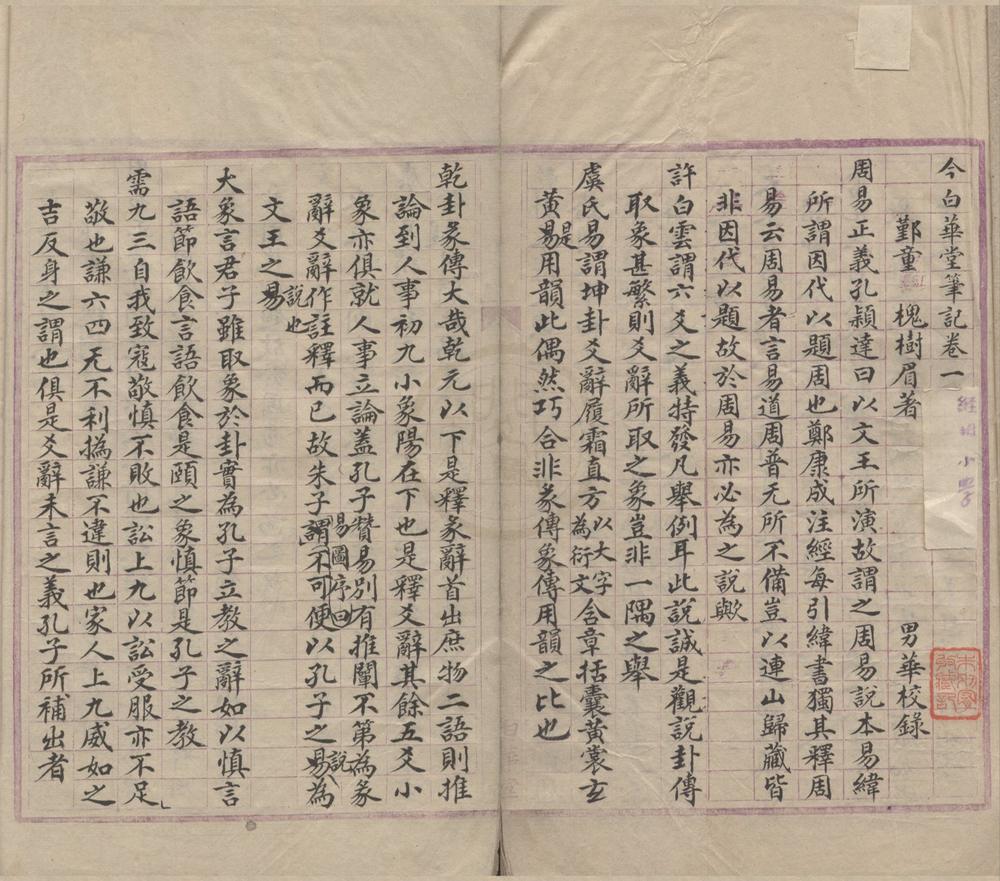 今白華堂筆記卷一
鄞童　槐樹眉著　男華校錄
周易正義孔穎達曰以文王所演故謂之周易說本易緯
所謂因代以題周也鄭康成注經每引緯書獨其釋周
易云周易者言易道周普无所不備豈以連山歸藏皆
非因代以題故於周易亦必為之說歟
許白雲謂六爻之義持發凡舉例耳此說誠是觀說卦傳
取象甚繁則爻辭所取之象豈非一隅之舉
虞氏易謂坤卦爻辭履霜直方以大字為衍文含章括囊黃裳玄
黃是易用韻此偶然巧合非彖傳象傳用韻之比也
乾卦彖傳大哉乾元以下是釋彖辭首出庶物二語則推
論到人事初九小象陽在下也是釋爻辭其餘五爻小
象亦俱就人事立論蓋孔子贊易別有推闡不第為彖
辭爻辭作註釋而已故朱子易圖序回謂不可便以孔子之易說為
文王之易說也
大象言君子雖取象於卦實為孔子立教之辭如以慎言
語節飲食言語飲食是頤之象慎節是孔子之教
需九三自我致寇敬慎不敗也訟上九以訟受服亦不足
敬也謙六四无不利撝謙不違則也家人上九威如之
吉反身之謂也俱是爻辭未言之義孔子所補出者